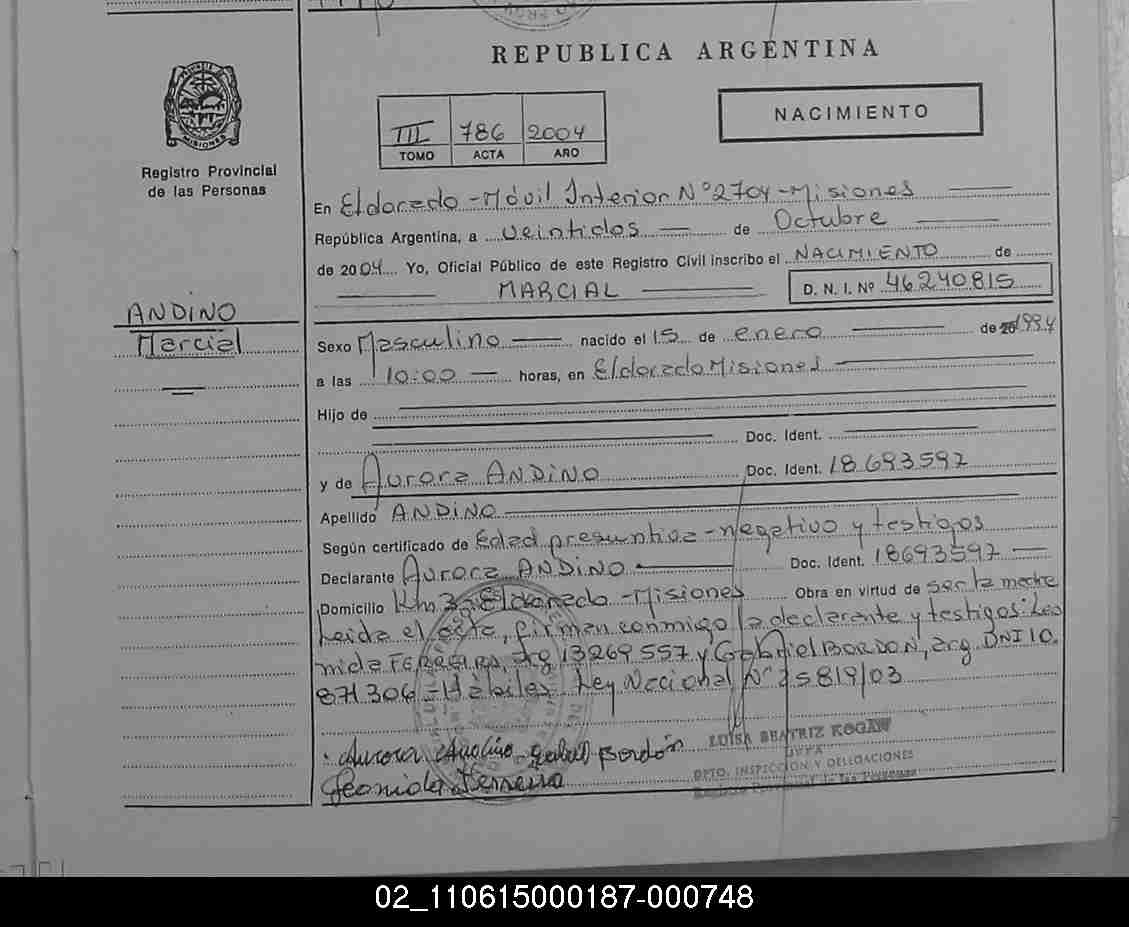 REPUBLICA ARGENTINA
NACIMIENTO
III 786 2004
TOMO ACTA AÑO
PROVINCIA DE MISIONES
Registro Provincial
de las Personas
En Eldorado - Móvil Interior N° 2704 - Misiones
República Argentina, a veintidos — de Octubre
de 2004 Yo, Oficial Público de este Registro Civil inscribo el NACIMIENTO de
MARCIAL D. N. I. Nº 46240815
ANDINO
Marcial
Sexo Masculino — nacido el 15 de enero — de 1994
a las 10:00 — horas, en Eldorado Misiones
Hijo de
Doc. Ident.
y de Aurora ANDINO Doc. Ident. 18693597
Apellido ANDINO
Según certificado de Edad presuntiva - negativo y testigos
Declarante Aurora ANDINO — Doc. Ident. 18693597 —
Domicilio Km 3 - Eldorado - Misiones Obra en virtud de ser la madre
Leida el acta, firman conmigo la declarante y testigos: Leo
nida FERREIRA, arg 13269557 y Gabriel BORDON, arg. DNI 10.
871306 - Hábiles Ley Nacional N° 25819/03
Aurora Andino - Gabriel Bordón
Leonida Ferreira
LUISA BEATRIZ KOGAN
JEFA
DPTO. INSPECCION Y DELEGACIONES
Registro Provincial de las Personas
02_110615000187-000748